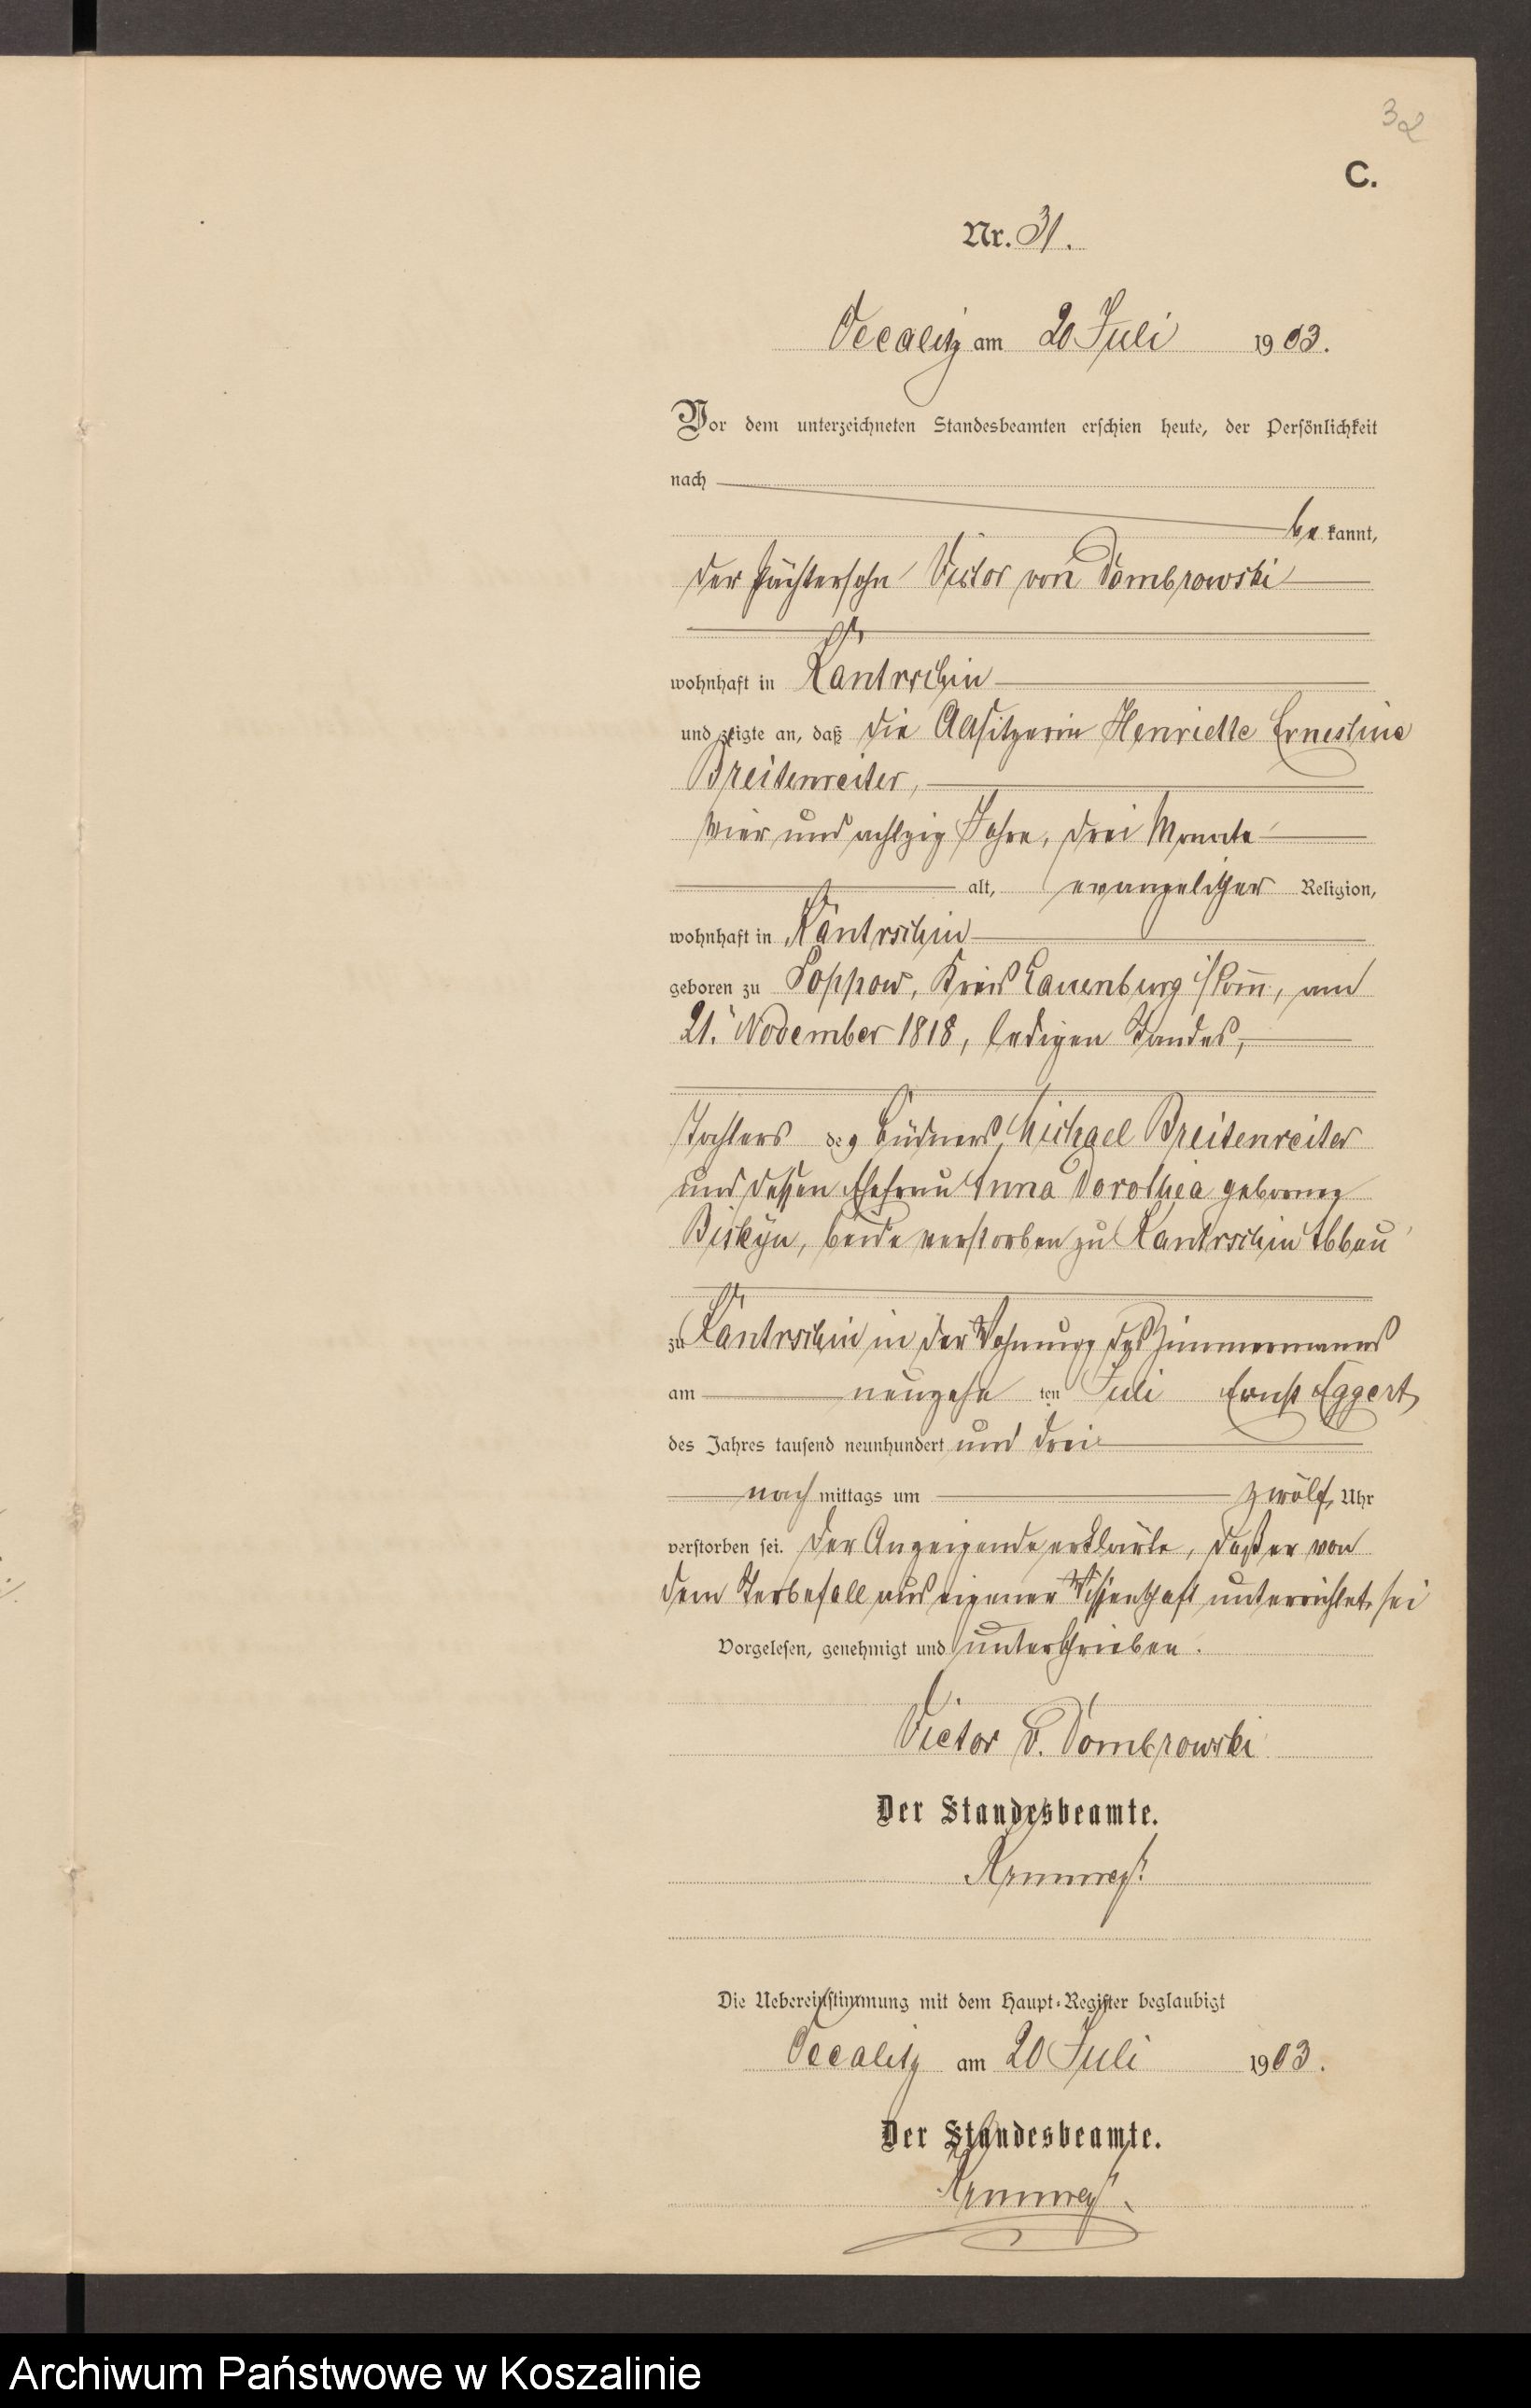 32
C.
Nr. 31.
Occalitz am 20 Juli 1903.
Vor dem unterzeichneten Standesbeamten erschien heute, der Persönlichkeit
nach
be kannt,
der Pächtersohn Victor von Dombrowski
wohnhaft in Kantrschin
und zeigte an, daß die Altsitzerin Henriette Ernestine
Breitenreiter,
vier und achtzig Jahre, drei Monate
alt, evangelischer Religion,
wohnhaft in Kantrschin
geboren zu Poppow, Kreis Lauenburg i/Pom̅., am
21. November 1818, ledigen Standes,
Tochter des Büdners Michael Breitenreiter
und dessen Ehefrau Anna Dorothea geborene
beide verstorben zu Kantrschin Abbau
zu Kantrschin in der Wohnung des Zimmermanns
am neunzehn ten Juli Ernst Eggert,
des Jahres tausend neunhundert und drei
nach mittags um zwölf Uhr
verstorben sei. Der Anzeigende erklärte, daß er von
dem Sterbefall aus eigener Wissenschaft unterrichtet sei
Vorgelesen, genehmigt und unterschrieben.
Victor v. Dombrowski
Der Standesbeamte.
Die Uebereinstimmung mit dem Haupt-Register beglaubigt
Occalitz am 20 Juli 1903.
Der Standesbeamte.
Archiwum Państwowe w Koszalinie